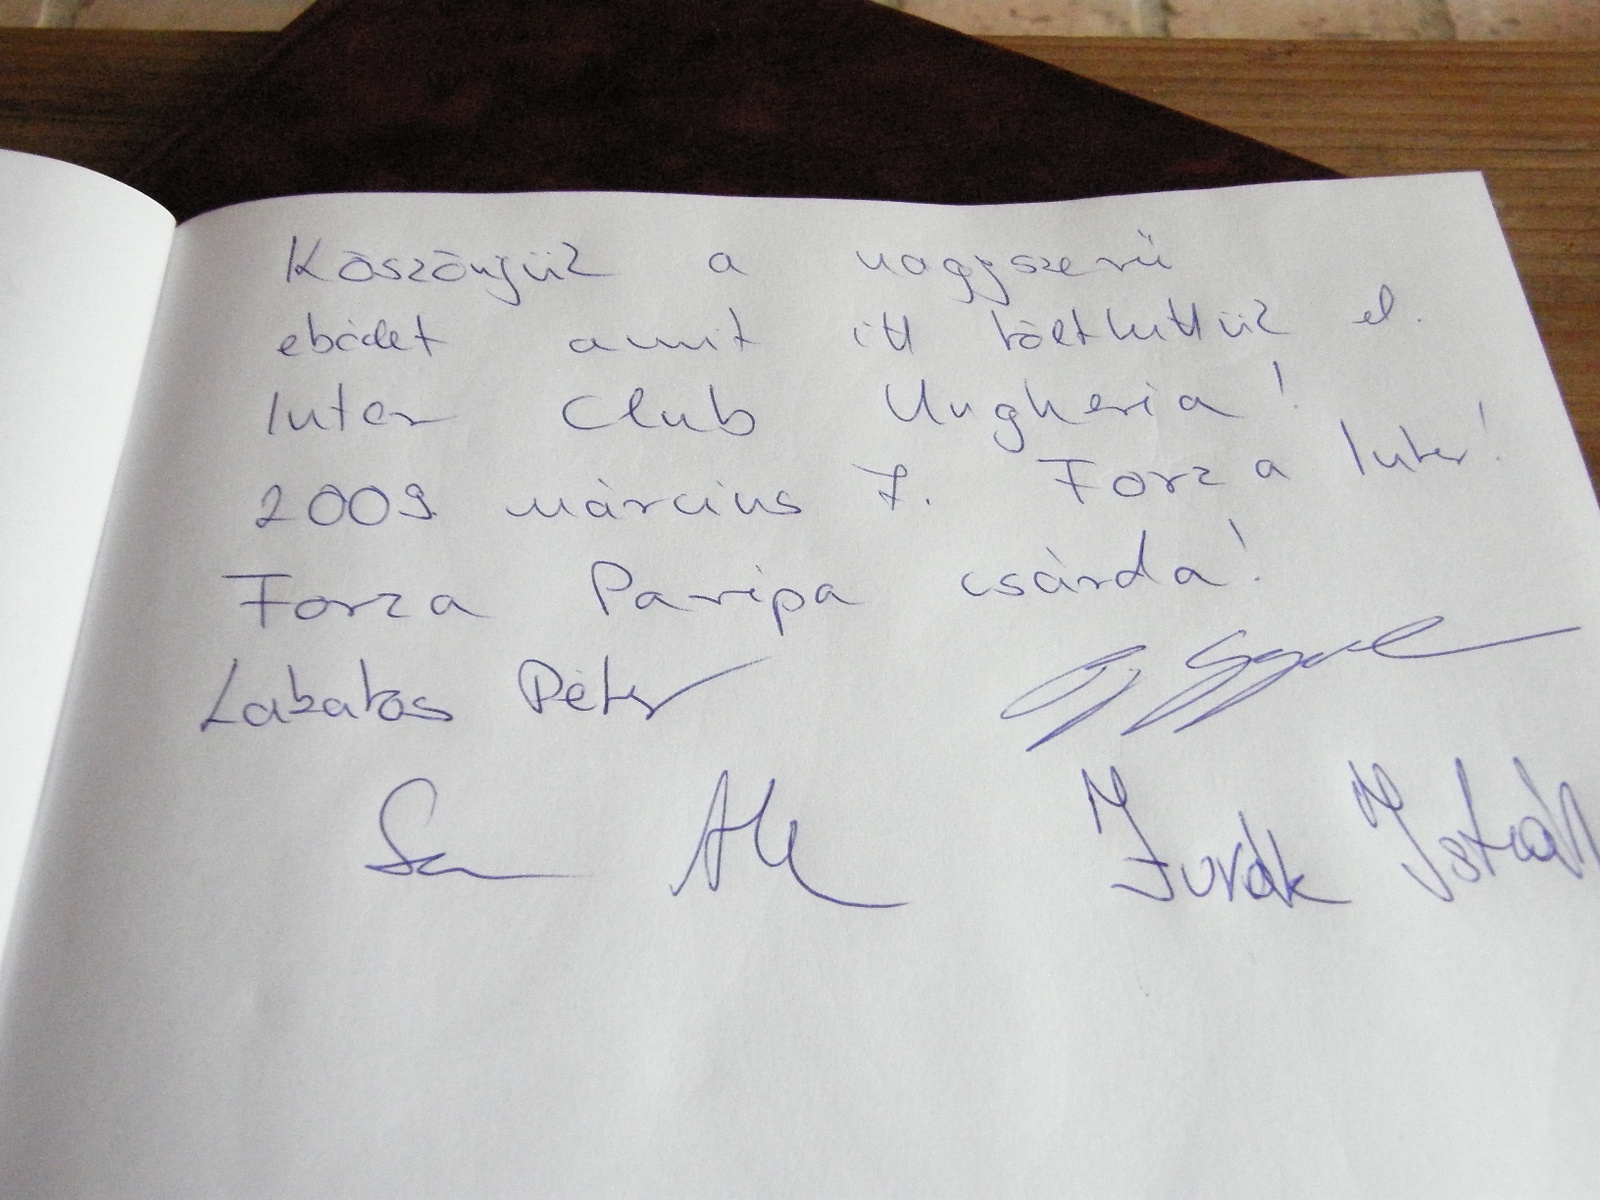 Köszönjük a nagyszerű
ebédet amit itt költhettük el.
Inter Club Ungheria!
2009 március 7. Forza Inter!
Forza Paripa csárda!
Lakatos Péter
Jurák István